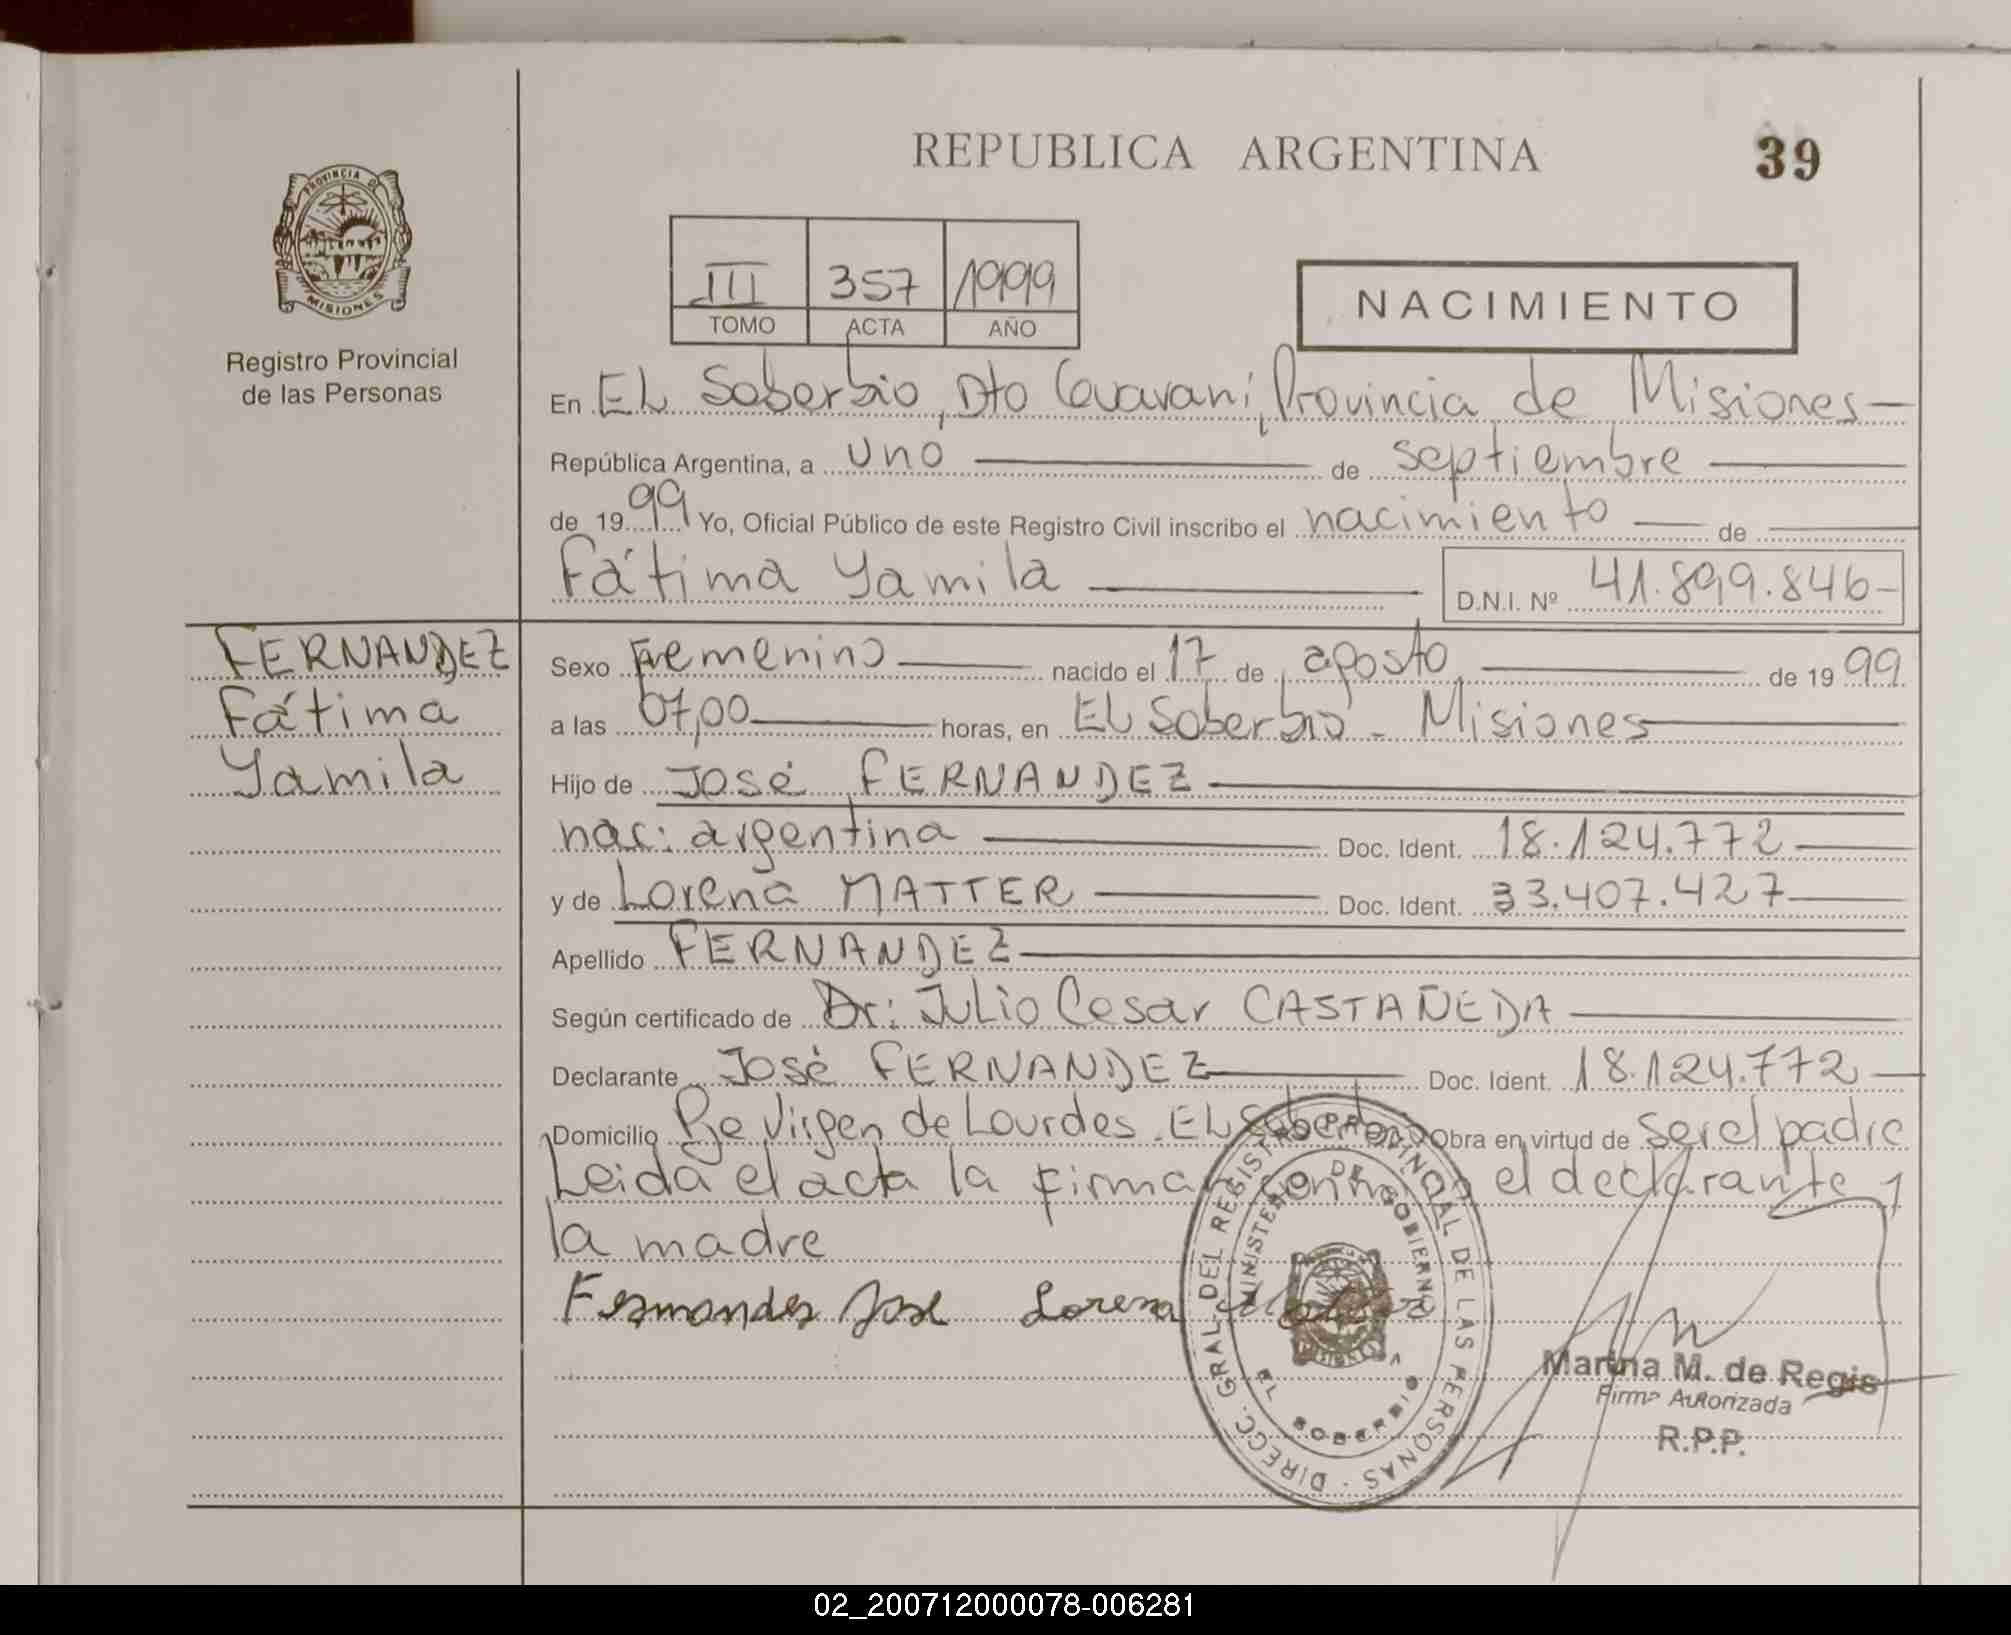 REPUBLICA ARGENTINA
39
PROVINCIA DE
MISIONES
Registro Provincial
de las Personas
III 357 1999
TOMO ACTA AÑO
NACIMIENTO
En EL Soberbio, Dto Guaraní, Provincia de Misiones
República Argentina, a uno de septiembre
de 1999 Yo, Oficial Público de este Registro Civil inscribo el nacimiento de
Fátima Yamila D.N.I. Nº 41.899.846
FERNANDEZ
Fátima
Yamila
Sexo Femenino nacido el 17 de agosto de 1999
a las 07,00 horas, en EL Soberbio - Misiones
Hijo de José FERNANDEZ
nac: argentina Doc. Ident. 18.124.772
y de Lorena MATTER Doc. Ident. 33.407.427
Apellido FERNANDEZ
Según certificado de Dr: Julio Cesar CASTAÑEDA
Declarante José FERNANDEZ Doc. Ident. 18.124.772
Domicilio Bº Virgen de Lourdes. EL Soberbio Obra en virtud de ser el padre
Leida el acta la firman conmigo el declarante y
la madre
Fernandez José Lorena
DIRECC. GRAL. DEL REGISTRO PROVINCIAL DE LAS PERSONAS
MINISTERIO DE GOBIERNO
EL SOBERBIO
MISIONES
Martina M. de Regis
Firma Autorizada
R.P.P.
02_200712000078-006281